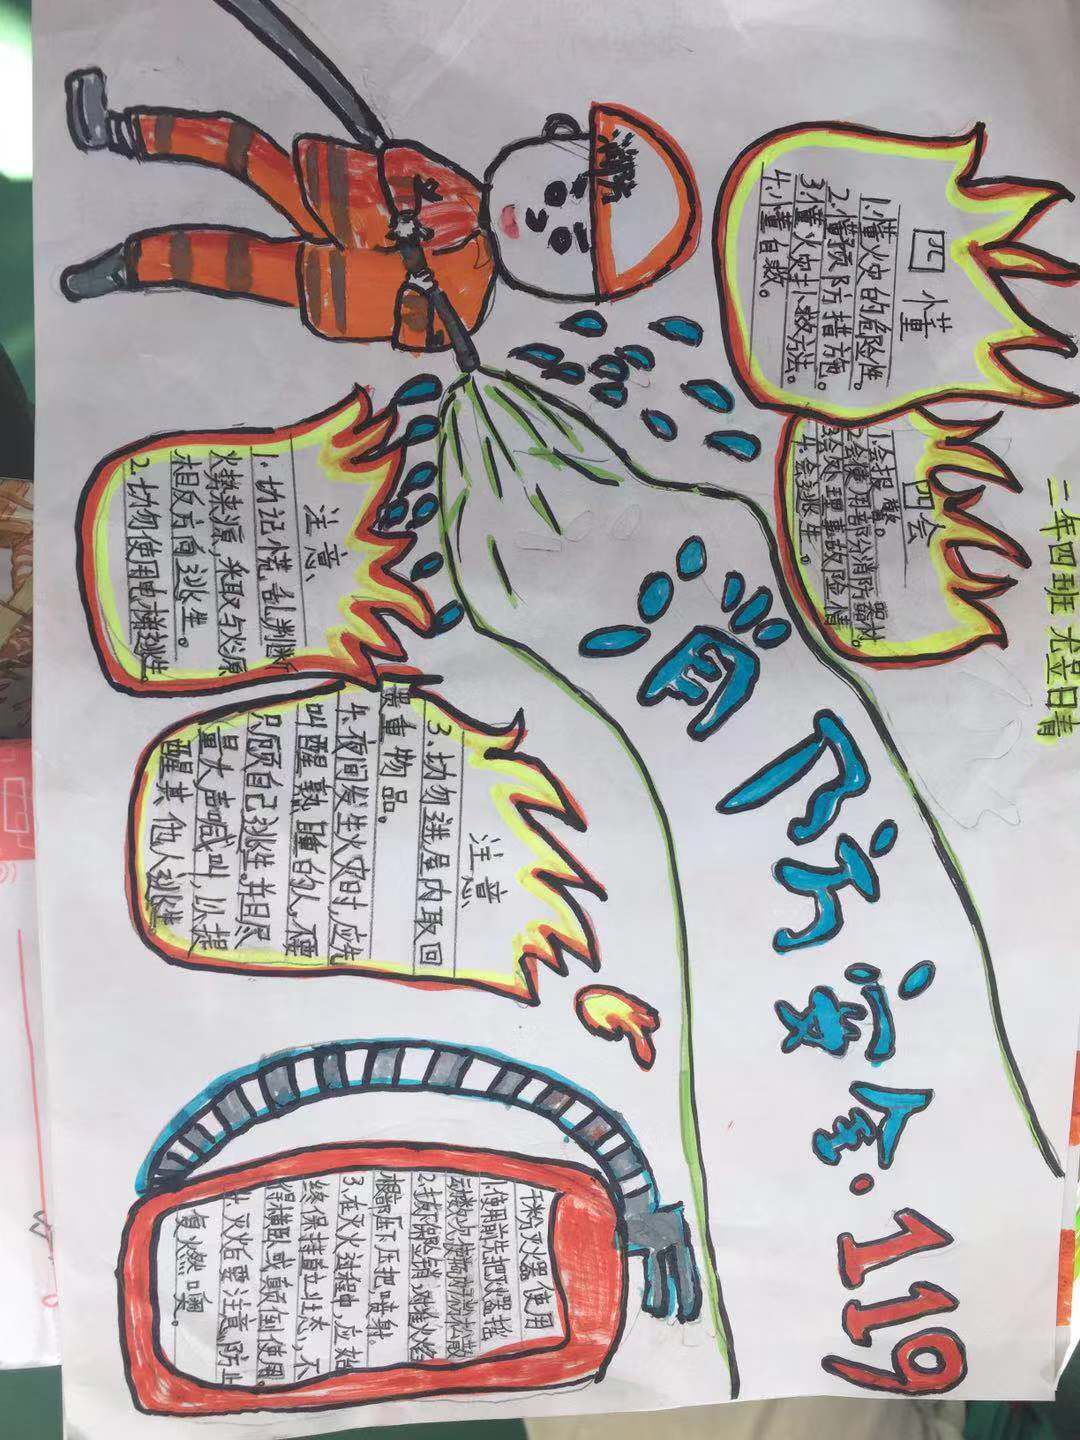 二年四班
消防安全·119
四懂
1.懂火灾的危险性。
2.懂预防措施。
3.懂火灾扑救方法。
4.小懂自救。
四会
1.会报警。
2.会使用部分消防器材。
3.会处理事故险情
4.会逃生。
注意
1.切记慌乱,判断
火势来源,采取与火源
相反方向逃生。
2.切勿使用电梯逃生
注意
3.切勿进屋内取回
贵重物品。
4.夜间发生火灾时,应先
叫醒熟睡的人,不要
只顾自己逃生,并且尽
量大声喊叫,以提
醒其他人逃生
干粉灭火器使用
1.使用前先把灭器摇
动数次使瓶内干粉松散
2.拔保险销,对准火焰
根部压下压把,喷射。
3.在灭火过程中,应始
终保持直立状态,不
得横卧或颠倒使用。
4.灭火后要注意防止
复燃噢。